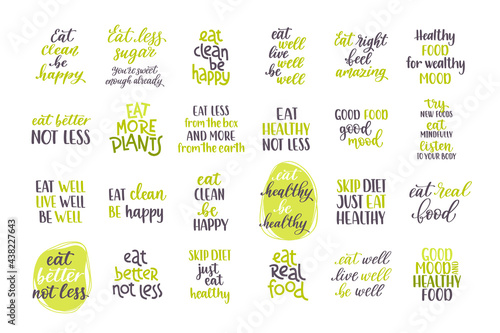 Eat
clean
be
happy
Eat less
sugar
you're sweet
enough already
eat
clean
be
happy
eat
well
live
well
be
well
Eat right
feel
amazing
Healthy
FOOD
for wealthy
MOOD
eat better
NOT LESS
EAT
MORE
PLANTS
EAT LESS
from the box
AND MORE
from the earth
EAT
HEALTHY
NOT LESS
GOOD FOOD
good
mood
try
NEW FOODS
eat
MINDFULLY
listen
TO YOUR BODY
EAT WELL
LIVE WELL
BE WELL
EAT clean
BE happy
eat
CLEAN
be
HAPPY
eat
healthy
be
healthy
SKIP DIET
JUST EAT
HEALTHY
eat real
food
eat
better
not less
eat
better
not less
SKIP DIET
just
eat
healthy
eat
Real
food
eat well
live well
be well
GOOD
MOOD AND
HEALTHY
FOOD
Adobe Stock | #438227643